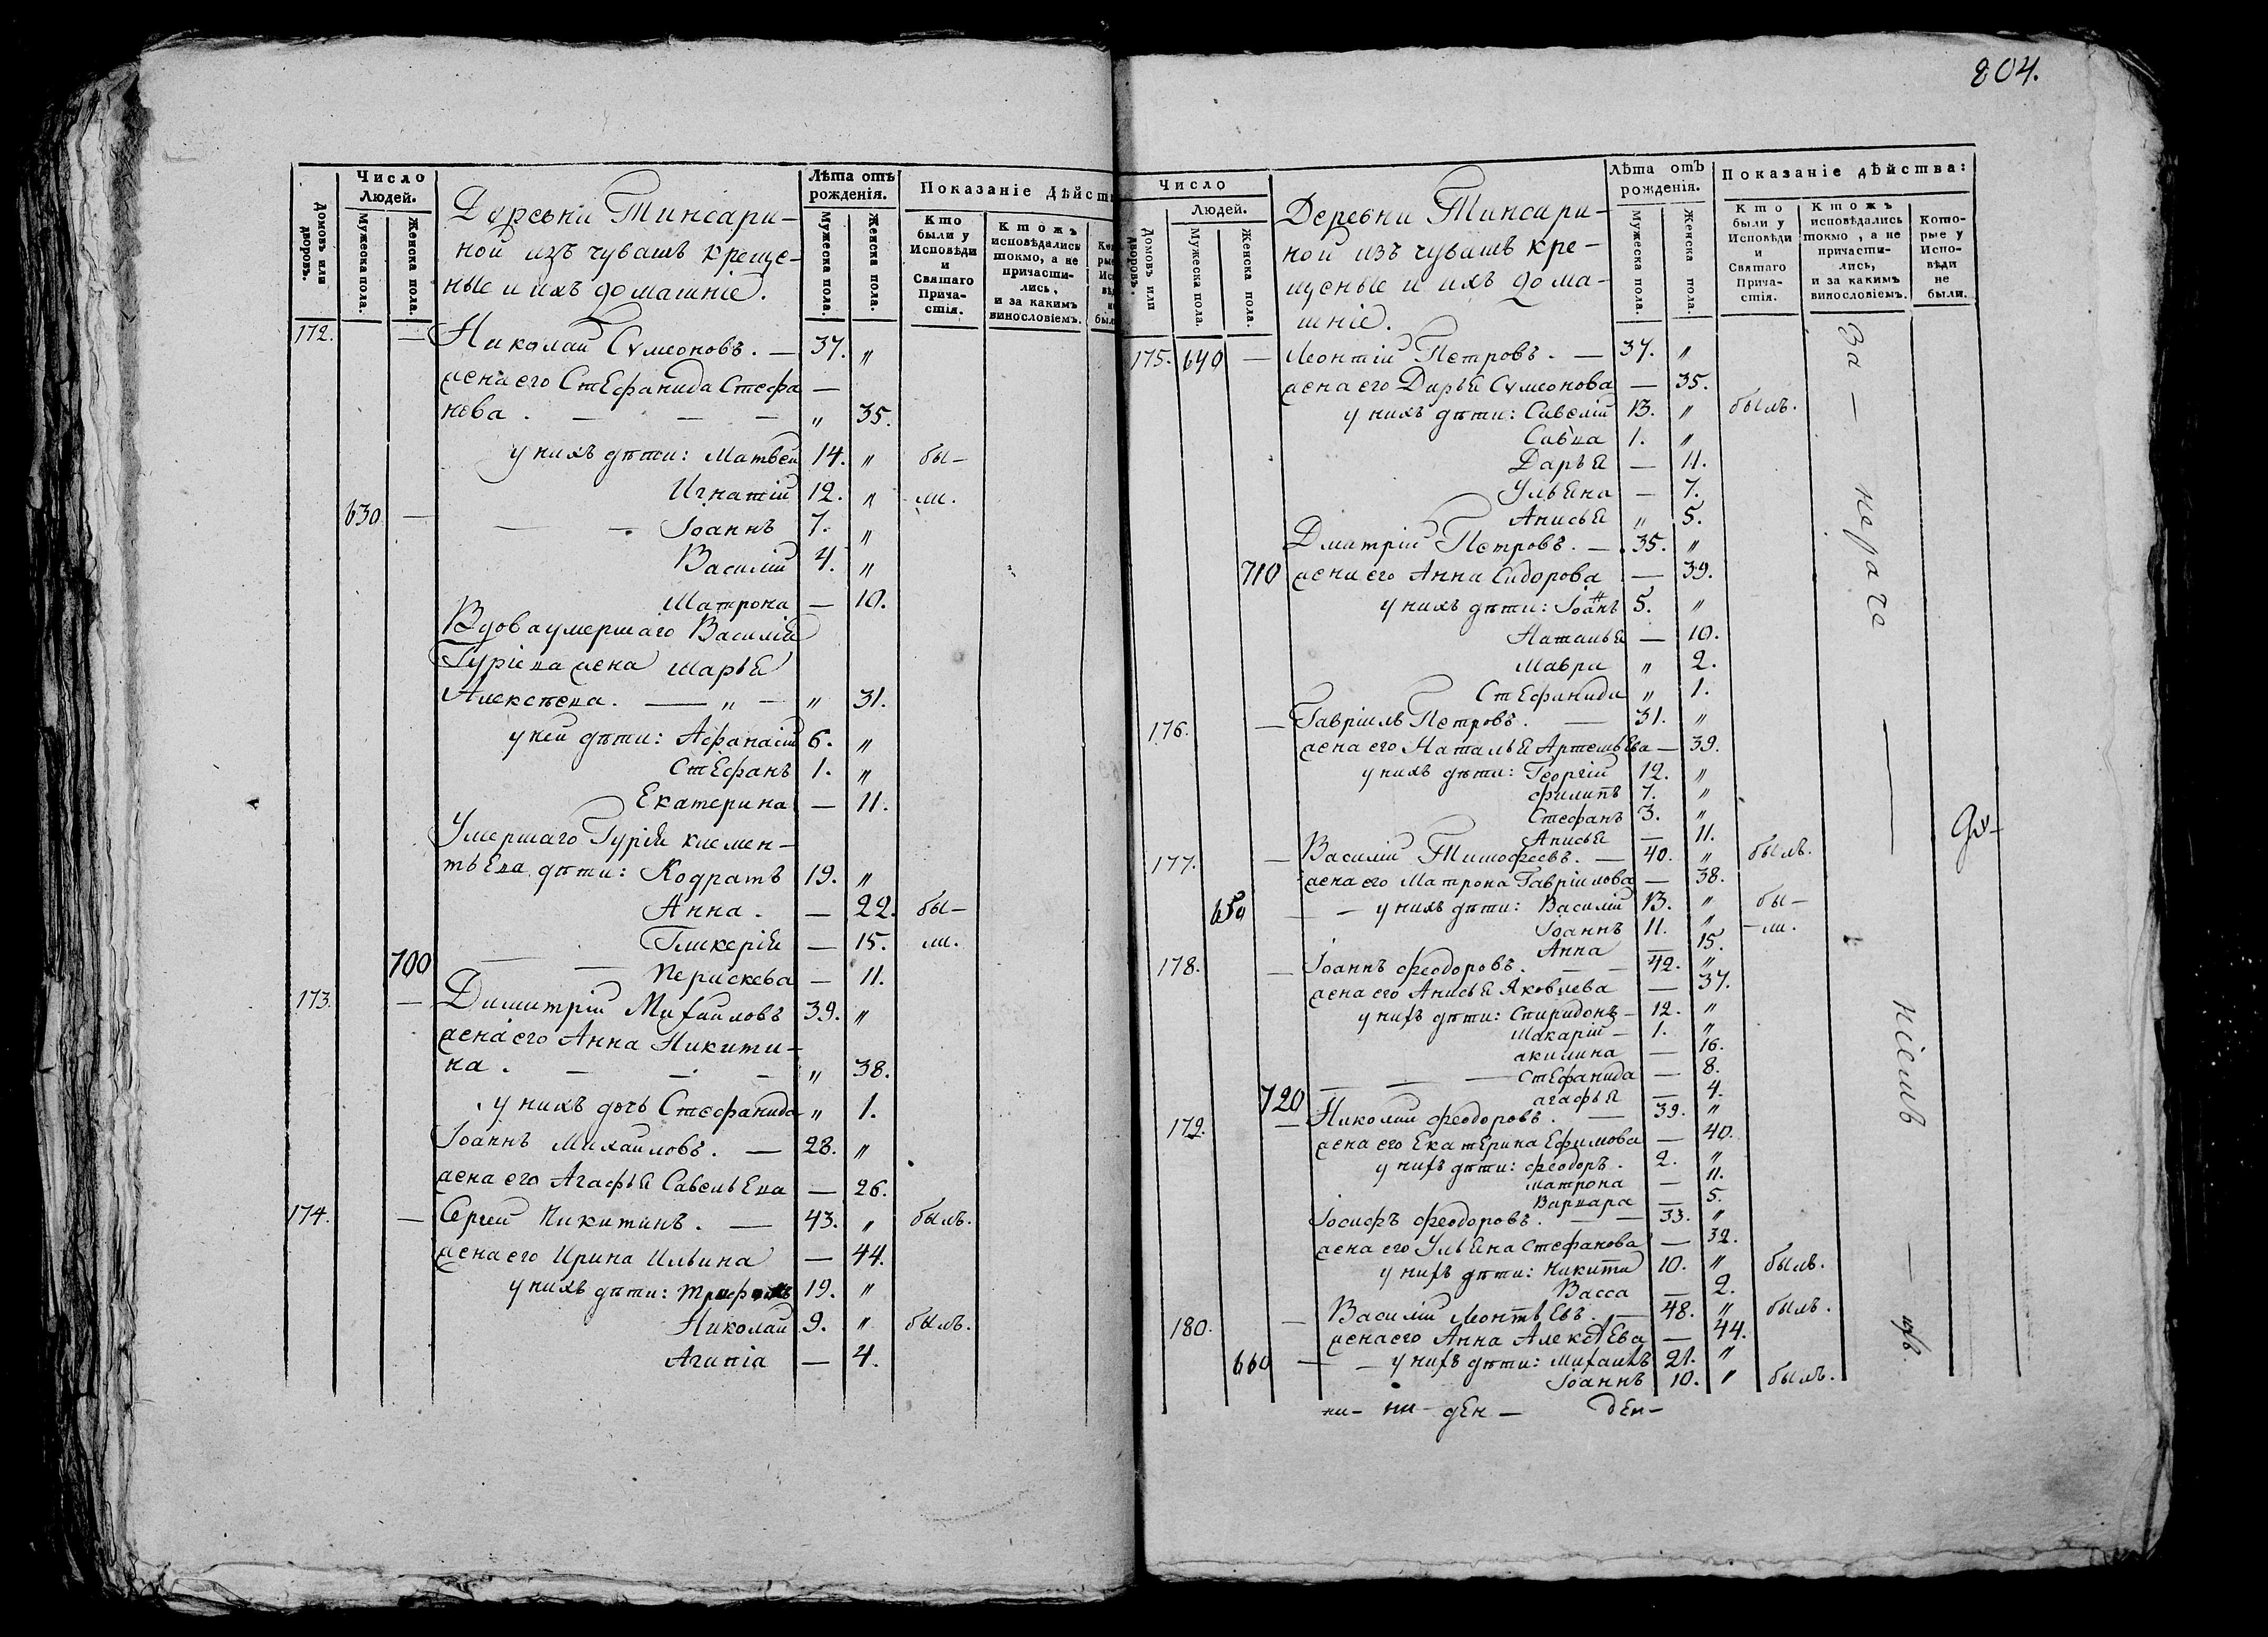 804.
Число
Людей.
Лѣта отъ
рожденія.
Показаніе дѣйст
Домовъ или
дворовъ.
Мужеска пола.
Женска пола.
Деревни Тинсари-
ной изъ чувашъ креще-
ные и ихъ домашніе.
Мужеска пола.
Женска пола.
Кто
были у
Исповѣди
и
Святаго
Прича-
стія.
Ктожъ
исповѣдались
токмо, а не
причасти-
лись,
и за какимъ
винословіемъ.
172. — Николай Сумеоновъ. — 37. "
жена его Стефанида Стефа —
нова. — — — " 35.
у нихъ дѣти: Матвей 14. " бы-
Игнатій 12. " ли.
630 — — — Іоаннъ 7. "
Василій 4. "
Матрона — 10.
Вдова умершаго Василія
Гуріева жена Марья
Алексѣева. — " — " 31.
у ней дѣти: Афанасій 6. "
Стефанъ 1. "
Екатерина — 11.
Умершаго Гурія клемен-
тьева дѣти: Кодратъ 19. "
Анна. — 22. бы-
Гликерія — 15. ли.
700 — — Перискева — 11.
173. — Димитрій Михайловъ 39. "
жена его Анна Никити-
на. — — — " 38.
у нихъ дочь Стефанида " 1.
Іоаннъ Михайловъ. — 28. "
жена его Агафья Савельева — 26.
174. — Сергей Никитинъ. — 43. " былъ.
жена его Ирина Ильина — 44.
у нихъ дѣти: Трифонъ 19. "
Николай 9. " былъ.
Агапіа — 4.
Число
Людей.
Лѣта отъ
рожденія.
Показаніе дѣйства:
Домовъ или
дворовъ.
Мужеска пола.
Женска пола.
Деревни Тинсари-
ной изъ чувашъ кре-
щеные и ихъ дома-
шніе.
Мужеска пола.
Женска пола.
Кто
были у
Исповѣди
и
Святаго
Прича-
стія.
Ктожъ
исповѣдались
токмо, а не
причасти-
лись,
и за какимъ
винословіемъ.
Кото-
рые у
Испо-
вѣди
не
были.
175. 640 — Леонтій Петровъ. — 37. "
жена его Дарья Сумеонова — 35.
у нихъ дѣти: Савелій 13. " былъ.
Савва 1. "
Дарья — 11.
Ульяна — 7.
Анисья " 5.
Дматрій Петровъ. — 35. "
710 жена его Анна Сидорова — 39.
у нихъ дѣти: Іоанъ 5. "
Наталья — 10.
Мавра " 2.
Стефанида " 1.
176. — Гавріилъ Петровъ. — 31. "
жена его Наталья Артемьева — 39.
у нихъ дѣти: Георгій 12. "
филипъ 7. "
Стефанъ 3. "
Анисья — 11.
177. — Василій Тимофеевъ. — 40. " былъ.
жена его Матрона Гавріилова — 38.
650 — — у нихъ дѣти: Василій 13. " бы-
Іоаннъ 11. " -ли.
Анна — 15.
178. — Іоаннъ феодоровъ. — — 42. "
жена его Анисья Яковлева — 37.
у нихъ дѣти: Спиридонъ — 12. "
Макарій — 1. "
акилина — 16.
Стефанида — 8.
720 — — — агафья — 4.
179. — Николай феодоровъ. — 39. "
жена его Екатерина Ефимова — 40.
у нихъ дѣти: феодоръ. 2. "
матрона — 11.
Варвара — 5.
Іосифъ феодоровъ. — — 33. "
жена его Ульяна Стефанова — 32.
у нихъ дѣти: Никита 10. " былъ.
Васса — 2.
180. — Василій Леонтьевъ. — 48. " былъ.
жена его Анна Алексѣева — 44.
660 — — у нихъ дѣти: Михаилъ 21. "
Іоаннъ 10. " былъ.
За — нера че — ніемъ —